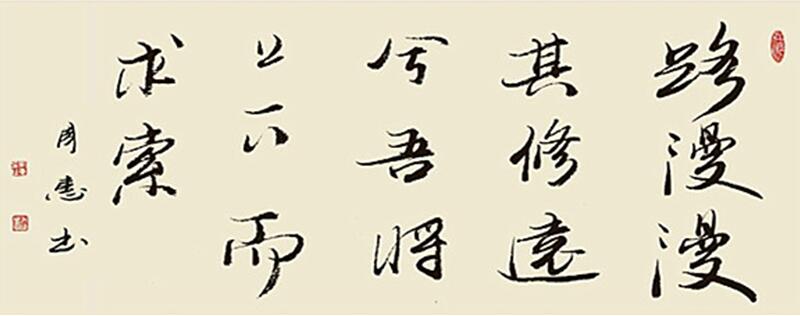 路漫漫
其修遠
兮吾將
上下而
求索
周惠书